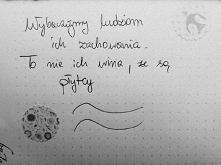 Wybaczajmy ludziom
ich zachowania.
To nie ich wina, że są
płytcy